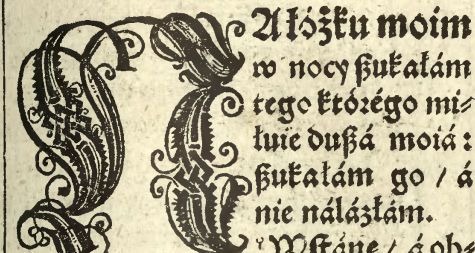 NA łóżku moim
w nocy ßukałám
tego którégo mi⸗
łuie dußá moiá :
ßukałám go / á
nie nálázłám.
Wſtánę / á ob⸗